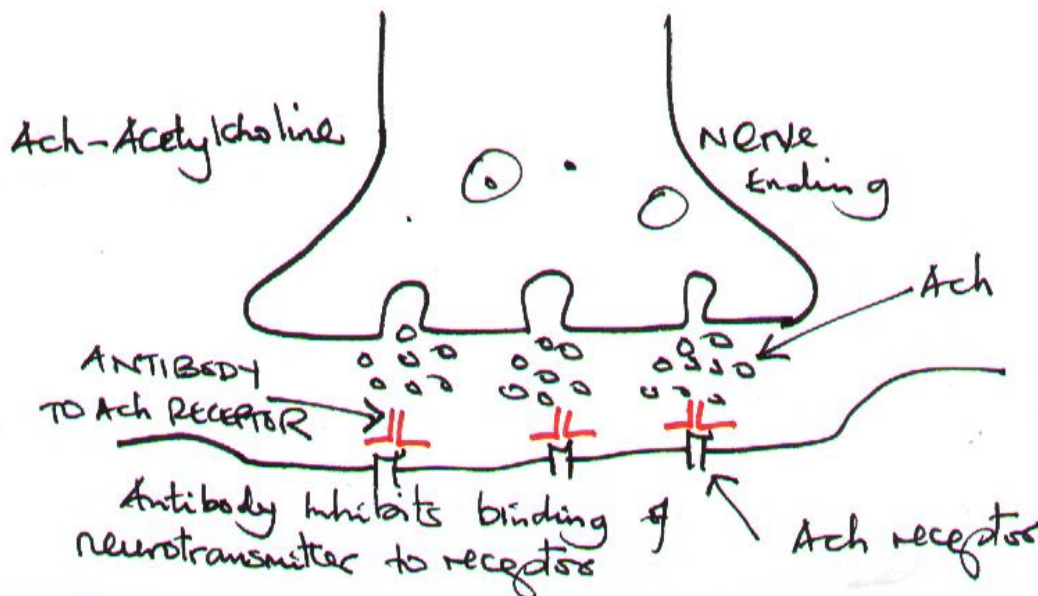 Ach-Acetylcholine
Nerve
Ending
Ach
ANTIBODY
TO Ach RECEPTOR
Antibody Inhibits binding of
neurotransmitter to receptor
Ach receptor